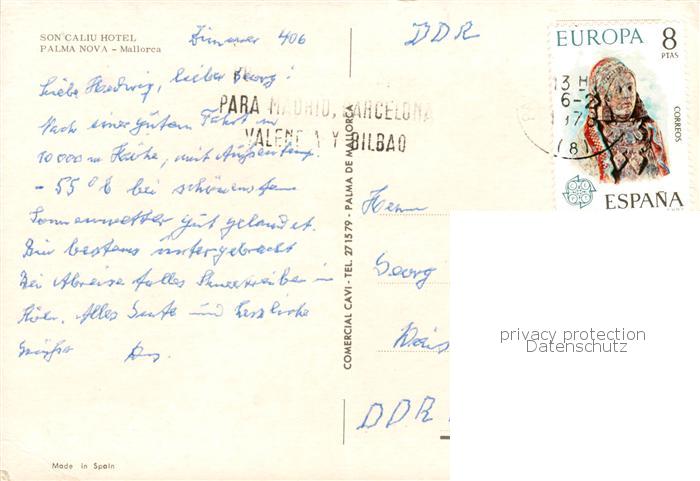 SON CALIU HOTEL
PALMA NOVA - Mallorca
Zimmer 406
Liebe Hedwig, lieber Georg!
Nach einer guten Fahrt in
10000 m Höhe, mit Außentemp.
- 55° bei schönstem
Sonnenwetter gut gelandet.
Bin bestens untergebracht
Bei Abreise tolles Schneetreiben in
Köln. Alles Gute und herzliche
Grüße
DDR
PARA MADRID, BARCELONA
VALENCIA Y BILBAO
EUROPA 8
PTAS
CORREOS
ESPAÑA
13 H
(8)
COMERCIAL CAVI - TEL. 271579 - PALMA DE MALLORCA
Herrn
Georg
DDR
privacy protection
Datenschutz
Made in Spain